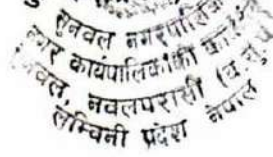 सुनवल नगरपालिका
नगर कार्यपालिकाको
नवलपरासी (ब.सु.प
लुम्बिनी प्रदेश नेपाल